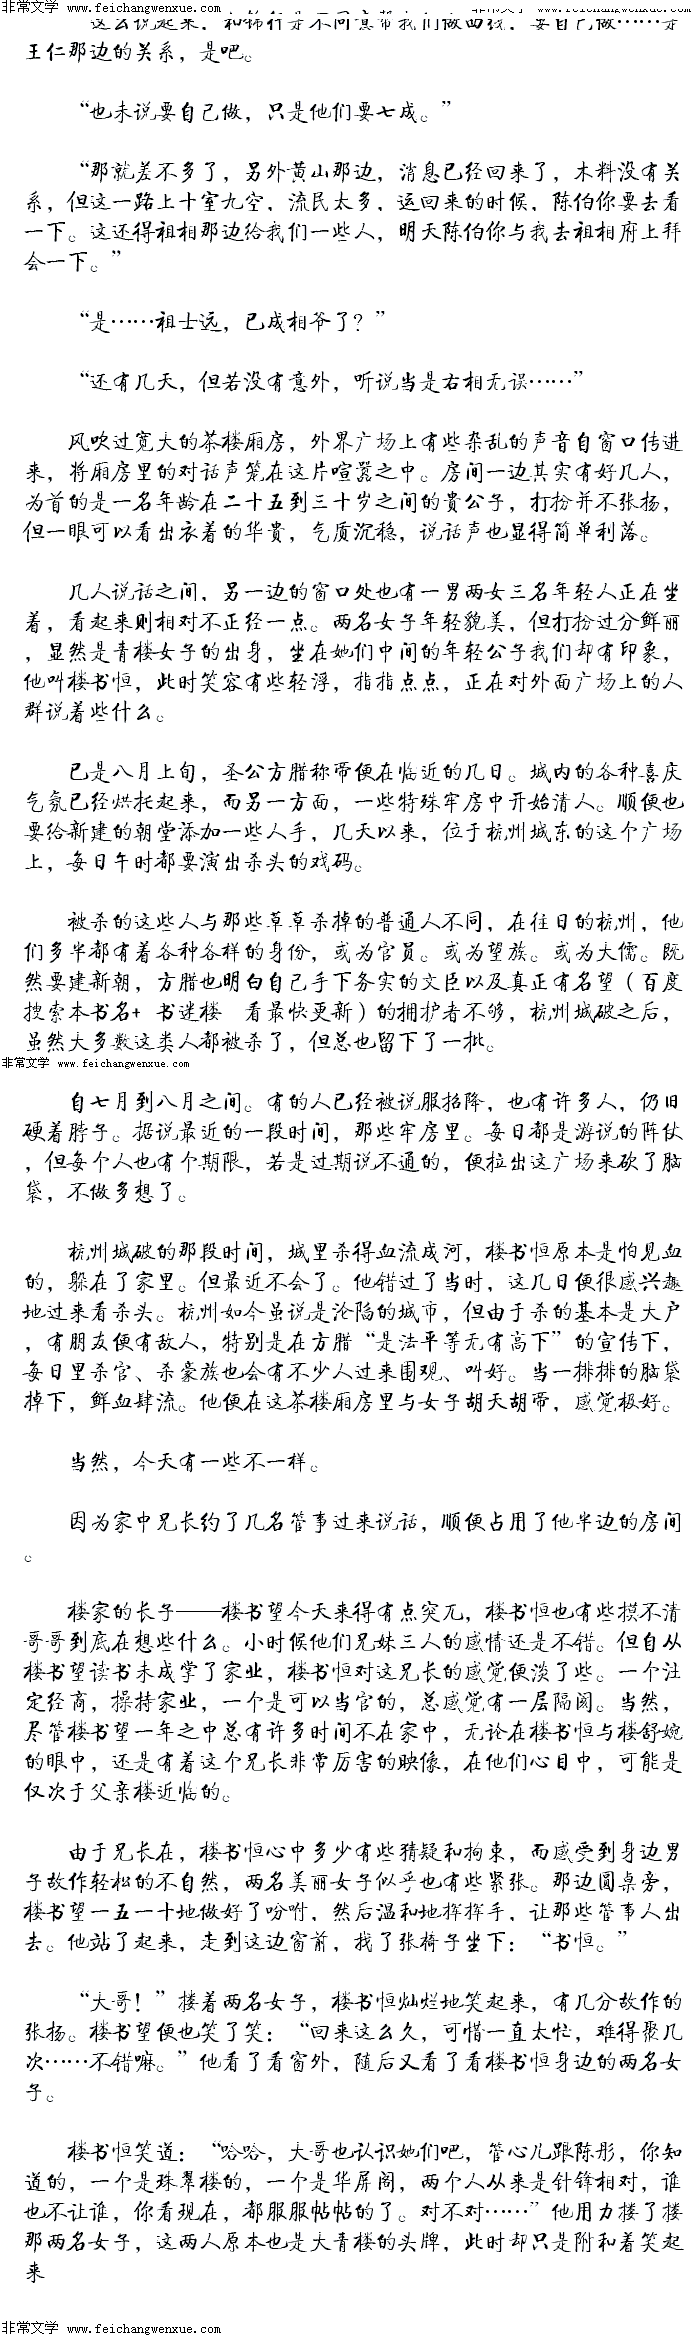 非常文学 www.feichangwenxue.com 非常文学 www.feichangwenxue.com
这么说起来，和锦行是不同意帮我们做西线，要自己做……是
王仁那边的关系，是吧。
“也未说要自己做，只是他们要七成。”
“那就差不多了，另外黄山那边，消息已经回来了，木料没有关
系，但这一路上十室九空，流民太多，运回来的时候，陈伯你要去看
一下。这还得祖相那边给我们一些人，明天陈伯你与我去祖相府上拜
会一下。”
“是……祖士远，已成相爷了？”
“还有几天，但若没有意外，听说当是右相无误……”
风吹过宽大的茶楼厢房，外界广场上有些杂乱的声音自窗口传进
来，将厢房里的对话声笼在这片喧嚣之中。房间一边其实有好几人，
为首的是一名年龄在二十五到三十岁之间的贵公子，打扮并不张扬，
但一眼可以看出衣着的华贵，气质沉稳，说话声也显得简单利落。
几人说话之间，另一边的窗口处也有一男两女三名年轻人正在坐
着，看起来则相对不正经一点。两名女子年轻貌美，但打扮过分鲜丽
，显然是青楼女子的出身，坐在她们中间的年轻公子我们却有印象，
他叫楼书恒，此时笑容有些轻浮，指指点点，正在对外面广场上的人
群说着些什么。
已是八月上旬，圣公方腊称帝便在临近的几日。城内的各种喜庆
气氛已经烘托起来，而另一方面，一些特殊牢房中开始清人。顺便也
要给新建的朝堂添加一些人手，几天以来，位于杭州城东的这个广场
上，每日午时都要演出杀头的戏码。
被杀的这些人与那些草草杀掉的普通人不同，在往日的杭州，他
们多半都有着各种各样的身份，或为官员。或为望族。或为大儒。既
然要建新朝，方腊也明白自己手下务实的文臣以及真正有名望（百度
搜索本书名+ 书迷楼 看最快更新）的拥护者不够，杭州城破之后，
虽然大多数这类人都被杀了，但总也留下了一批。
非常文学 www.feichangwenxue.com
自七月到八月之间。有的人已经被说服招降，也有许多人，仍旧
硬着脖子。据说最近的一段时间，那些牢房里。每日都是游说的阵仗
，但每个人也有个期限，若是过期说不通的，便拉出这广场来砍了脑
袋，不做多想了。
杭州城破的那段时间，城里杀得血流成河，楼书恒原本是怕见血
的，躲在了家里。但最近不会了。他错过了当时，这几日便很感兴趣
地过来看杀头。杭州如今虽说是沦陷的城市，但由于杀的基本是大户
，有朋友便有敌人，特别是在方腊“是法平等无有高下”的宣传下，
每日里杀官、杀豪族也会有不少人过来围观、叫好。当一排排的脑袋
掉下，鲜血肆流。他便在这茶楼厢房里与女子胡天胡帝，感觉极好。
当然，今天有一些不一样。
因为家中兄长约了几名管事过来说话，顺便占用了他半边的房间
。
楼家的长子——楼书望今天来得有点突兀，楼书恒也有些摸不清
哥哥到底在想些什么。小时候他们兄妹三人的感情还是不错。但自从
楼书望读书未成掌了家业，楼书恒对这兄长的感觉便淡了些。一个注
定经商，操持家业，一个是可以当官的，总感觉有一层隔阂。当然，
尽管楼书望一年之中总有许多时间不在家中，无论在楼书恒与楼舒婉
的眼中，还是有着这个兄长非常厉害的映像，在他们心目中，可能是
仅次于父亲楼近临的。
由于兄长在，楼书恒心中多少有些猜疑和拘束，而感受到身边男
子故作轻松的不自然，两名美丽女子似乎也有些紧张。那边圆桌旁，
楼书望一五一十地做好了吩咐，然后温和地挥挥手，让那些管事人出
去。他站了起来，走到这边窗前，找了张椅子坐下：“书恒。”
“大哥！”搂着两名女子，楼书恒灿烂地笑起来，有几分故作的
张扬。楼书望便也笑了笑：“回来这么久，可惜一直太忙，难得聚几
次……不错嘛。”他看了看窗外，随后又看了看楼书恒身边的两名女
子。
楼书恒笑道：“哈哈，大哥也认识她们吧，管心儿跟陈彤，你知
道的，一个是珠翠楼的，一个是华屏阁，两个人从来是针锋相对，谁
也不让谁，你看现在，都服服帖帖的了。对不对……”他用力搂了搂
那两名女子，这两人原本也是大青楼的头牌，此时却只是附和着笑起
来
非常文学 www.feichangwenxue.com